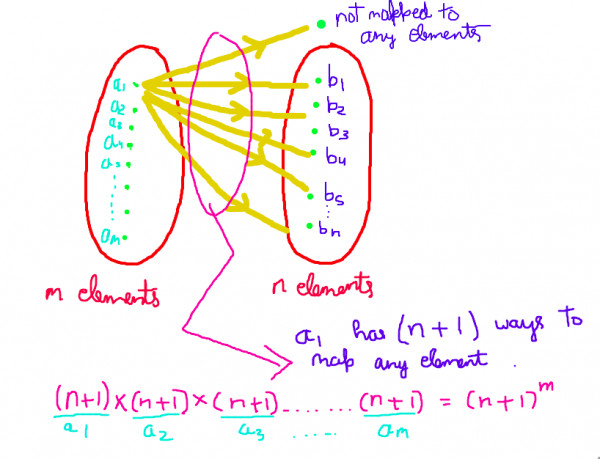 not mapped to
any elements
a1
a2
a3
a4
a5
am
b1
b2
b3
b4
b5
bn
m elements
n elements
a1 has (n+1) ways to
map any element.
(n+1)×(n+1)×(n+1).......(n+1) = (n+1)^m
a1 a2 a3 ..... am